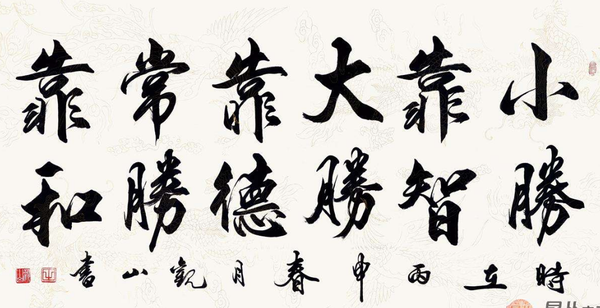 小勝
靠智
大勝
靠德
常勝
靠和
時在丙申春月觀山書